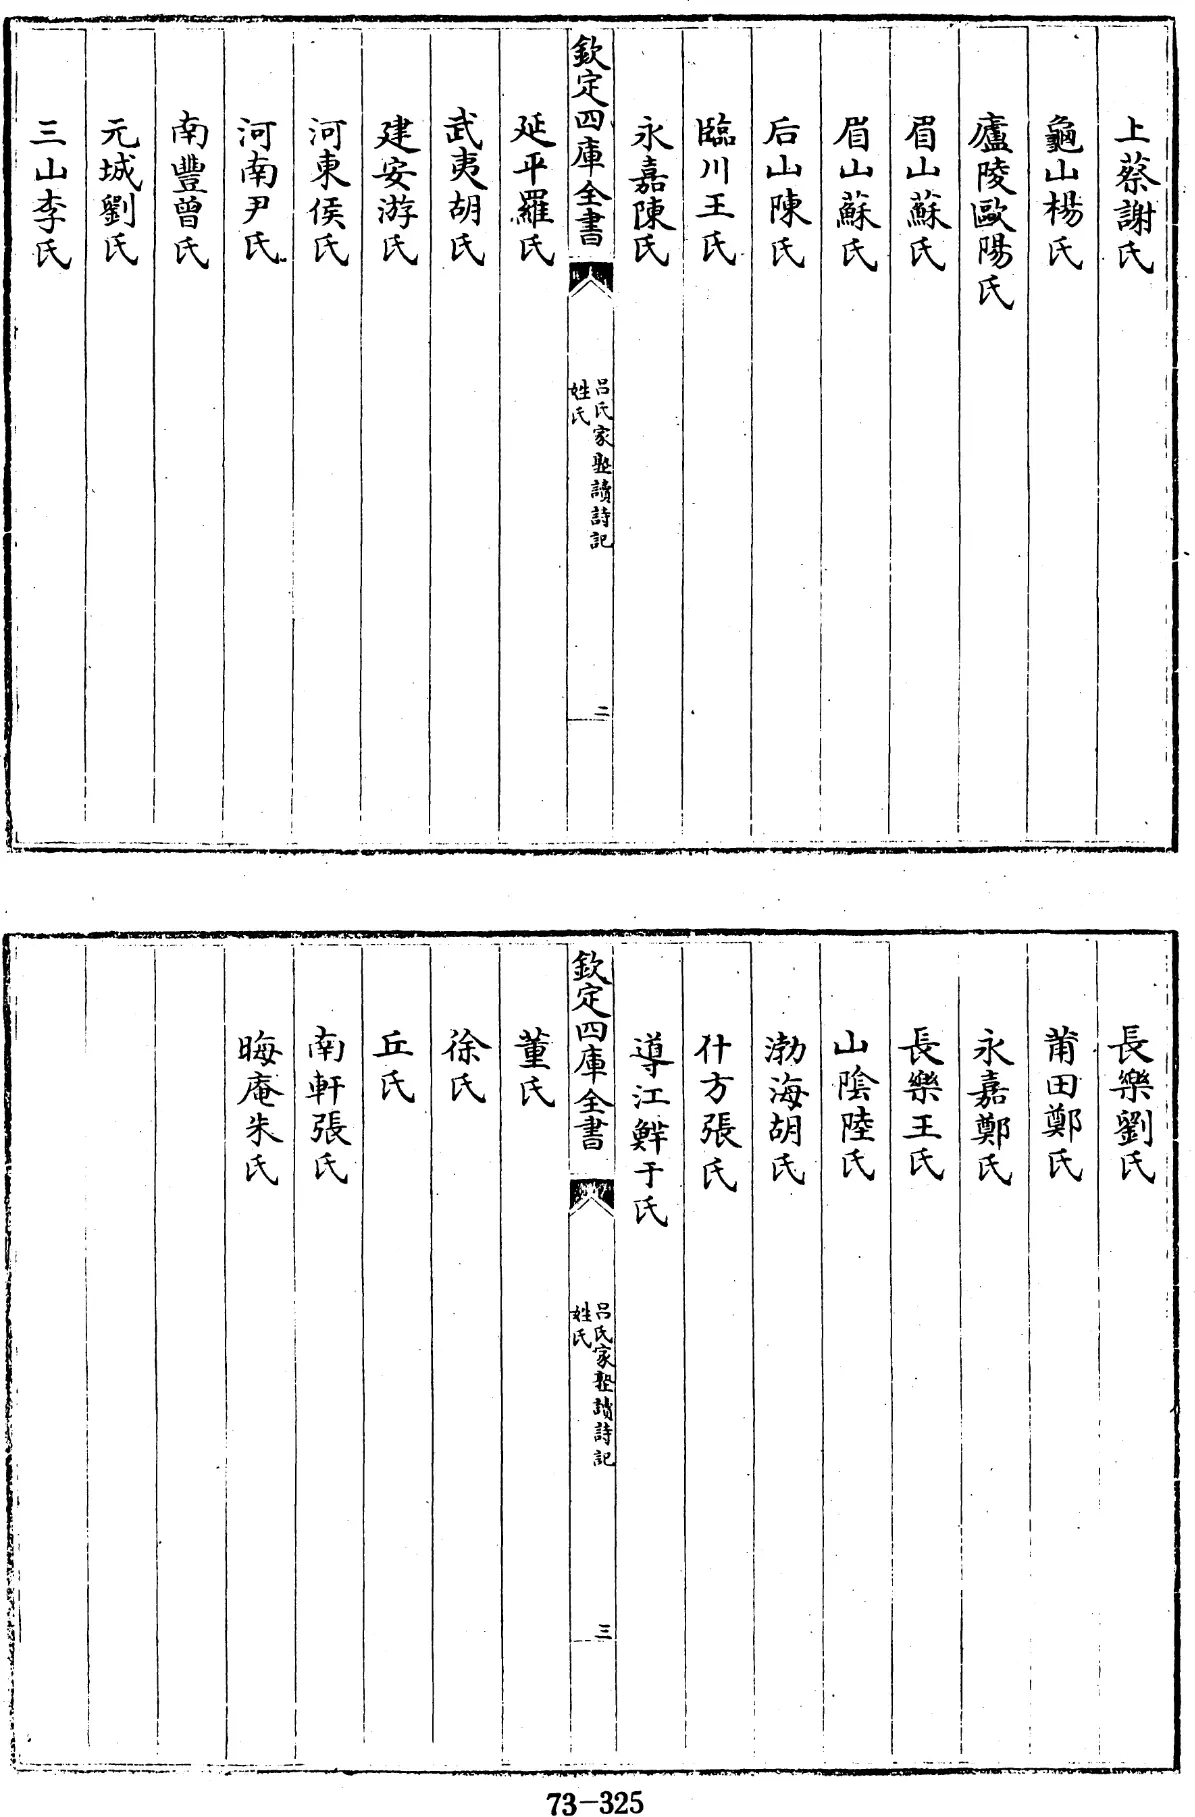 上蔡謝氏
龜山楊氏
廬陵歐陽氏
眉山蘇氏
眉山蘇氏
后山陳氏
臨川王氏
永嘉陳氏
欽定四庫全書
呂氏家塾讀詩記
姓氏
二
延平羅氏
武夷胡氏
建安游氏
河東侯氏
河南尹氏
南豐曾氏
元城劉氏
三山李氏
長樂劉氏
莆田鄭氏
永嘉鄭氏
長樂王氏
山陰陸氏
渤海胡氏
什方張氏
導江鮮于氏
欽定四庫全書
呂氏家塾讀詩記
姓氏
三
董氏
徐氏
丘氏
南軒張氏
晦庵朱氏
73-325